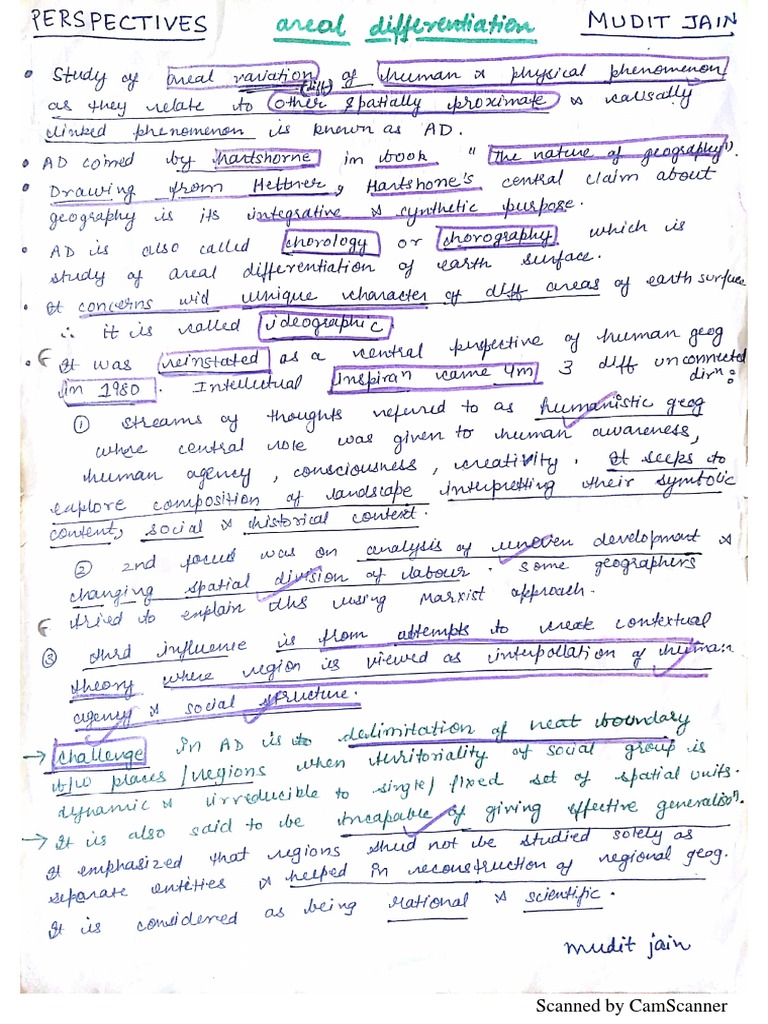 PERSPECTIVES areal differentiation MUDIT JAIN
• Study of areal variation of human & physical phenomenon
(diff)
as they relate to other spatially proximate & causally
linked phenomenon is known as AD.
• AD coined by Hartshorne in book "The nature of geography".
• Drawing from Hettner, Hartshone's central claim about
geography is its integrative & synthetic purpose.
• AD is also called chorology or chorography which is
study of areal differentiation of earth surface.
• It concerns wid unique character of diff areas of earth surface
∴ it is called ideographic
• It was reinstated as a central perspective of human geog
in 1980. Intellectual inspiran came 4m 3 diff unconnected
dirn:
① streams of thoughts referred to as humanistic geog
where central role was given to human awareness,
human agency, consciousness, creativity. It seeks to
explore composition of landscape interpretting their symbolic
content, social & historical context.
② 2nd focus was on analysis of uneven development &
changing spatial division of labour. Some geographers
tried to explain this using Marxist approach.
③ third influence is from attempts to create contextual
theory where region is viewed as interpollation of human
agency & social structure.
→ Challenge in AD is to delimitation of neat boundary
b/w places/regions when territoriality of social group is
dynamic & irreducible to single/fixed set of spatial units.
→ It is also said to be incapable of giving effective generalisn.
It emphasized that regions shud not be studied solely as
separate entities & helped in reconstruction of regional geog.
It is considered as being rational & scientific.
mudit jain
Scanned by CamScanner